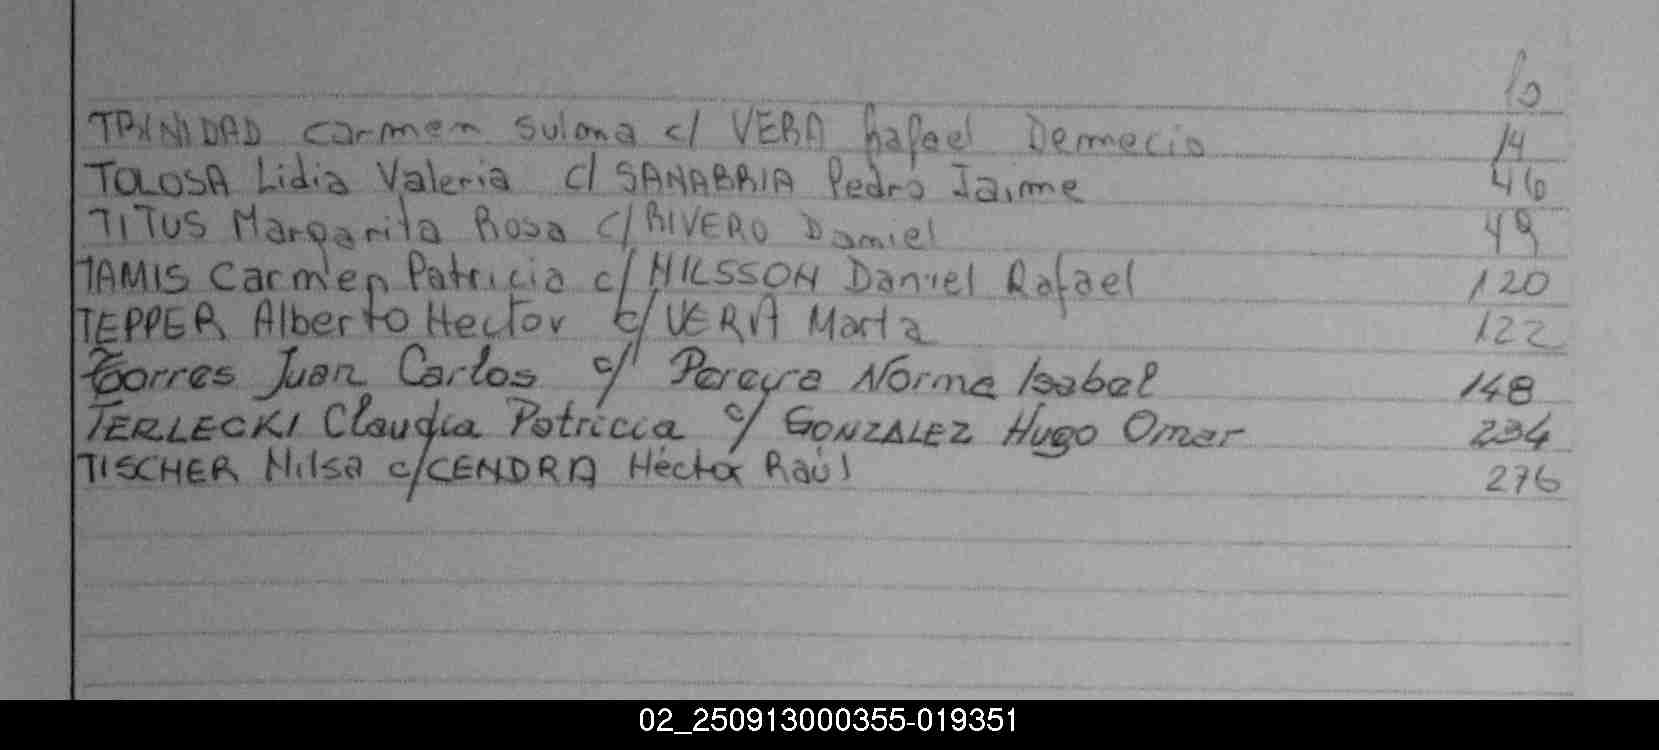 fo
TRINIDAD Carmen Sulma c/ VERA Rafael Demecio 14
TOLOSA Lidia Valeria c/ SANABRIA Pedro Jaime 46
TITUS Margarita Rosa c/ RIVERO Daniel 49
TAMIS Carmen Patricia c/ NILSSON Daniel Rafael 120
TEPPER Alberto Hector c/ VERA Marta 122
Torres Juan Carlos c/ Pereyra Norma Isabel 148
TERLECKI Claudia Patricia c/ GONZALEZ Hugo Omar 234
TISCHER Nilsa c/ CENDRA Héctor Raúl 276
02_250913000355-019351